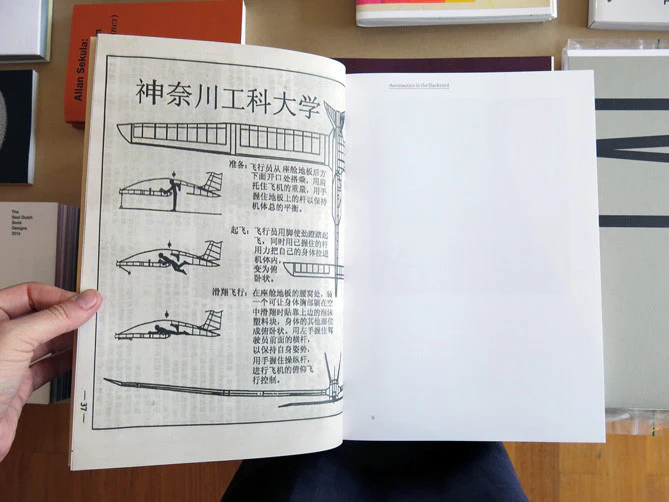 Allan Sekula:
神奈川工科大学
准备：飞行员从座舱地板后方
下面开口处搭乘，用肩
托住飞机的重量，用手
握住地板上的杆以保持
机体总的平衡。
起飞：飞行员用脚使劲蹬踏起
飞，同时用已握住的杆
用力把自己的身体拉进
机体内，
变为俯
卧状。
滑翔飞行：在座舱地板的腰窝处，装
一个可让身体胸部躺在空
中滑翔时贴靠上边的泡沫
塑料块，身体的其他部位
成俯卧状。用左手握住驾
驶员前面的横杆，
以保持自身姿势，
用手握住操纵杆，
进行飞机的俯仰飞
行控制。
—37—
Aeronautics in the Backyard
The
Best Dutch
Book
Designs
2014